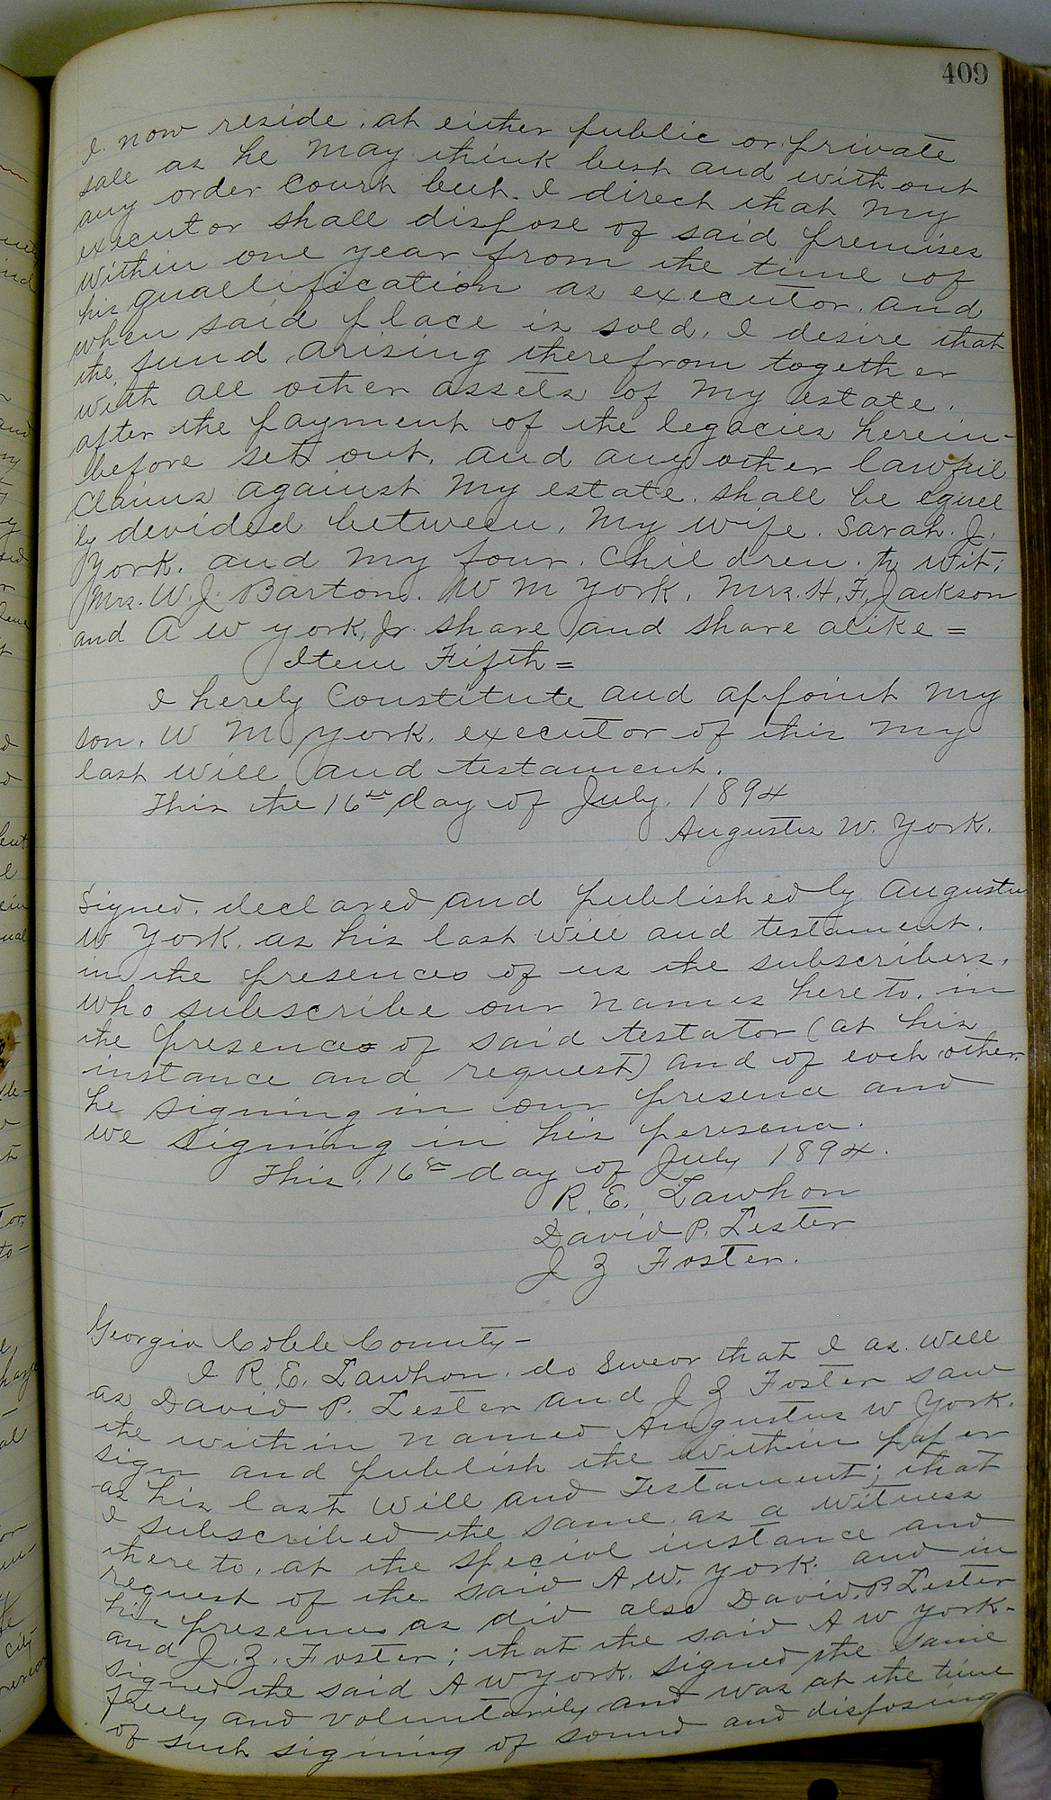 409
I now reside, at either public or private
sale as he may think best and without
any order Court but I direct that my
executor shall dispose of said premises
within one year from the time of
his quallification as executor, and
when said place is sold, I desire that
the fund arising therefrom together
with all other assets of my estate.
after the payment of the legacies herein-
before set out, and any other lawful
Claims against my estate shall be equel
ly devided between, my wife. Sarah. J.
York, and my four Children. to wit;
Mrs. W. J. Barton. W M York, Mrs. H. F. Jackson
and A W York, Jr. share and share alike =
Item Fifth =
I herely Constitute and appoint my
son, W M York, executor of this my
last will and testament.
This the 16th day of July, 1894
Augustus W. York.
Signed, declared and published by Augustus
W York, as his last will and testament,
in the presences of us the subscribers,
who subscribe our names hereto, in
the presences of said testator (at his
instance and request) and of each other
he signing in our presence and
we signing in his peresence.
This, 16th day of July 1894.
R. E. Lawhon
David P. Lester
J Z Foster.
Georgia Cobb County -
I R. E. Lawhon, do swear that I as well
as David P. Lester and J Z Foster saw
the within named Augustus W York.
sign and publish the within paper
as his last will and Testament; that
I subscribed the same as a witness
thereto, at the special instance and
request of the said A. W. York and in
his presence as did also David. P. Lester
and J. Z. Foster; that the said A W York-
signed the said A W York. signed the same
freely and voluntarily and was at the time
of such signing of sound and disposing